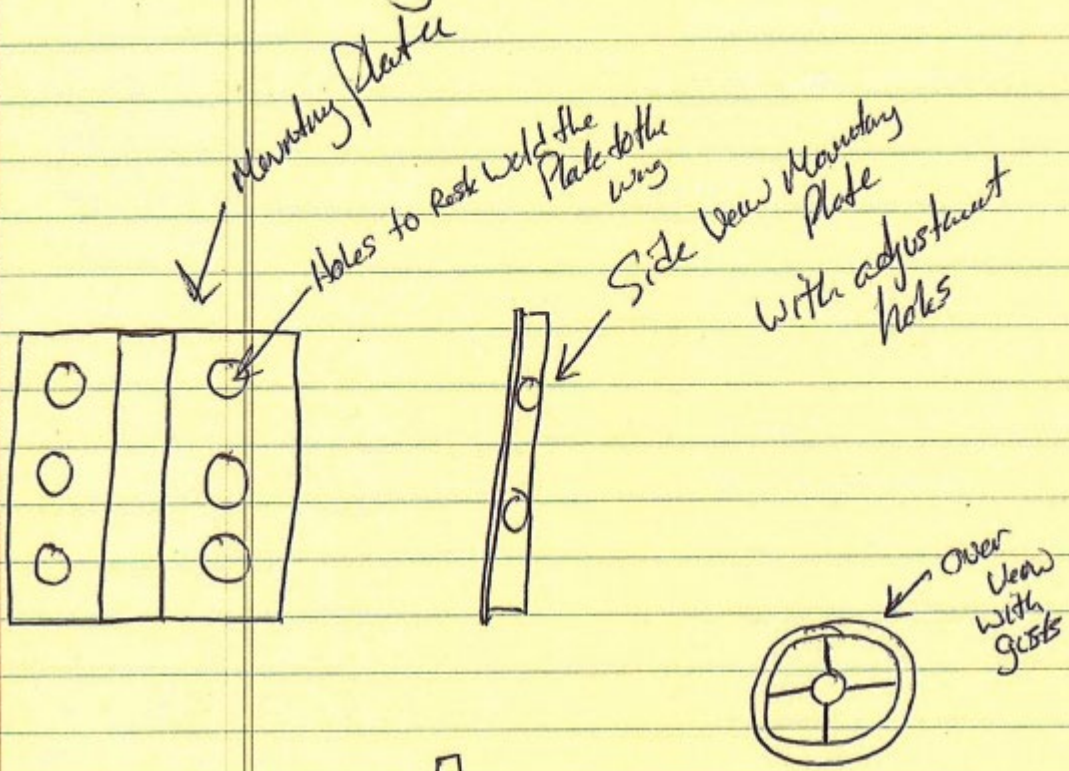 Mounting Plate
Holes to Rosk Weld the
Plate to the
Wing
Side View Mounting
Plate
with adjustment
holes
over
View
with